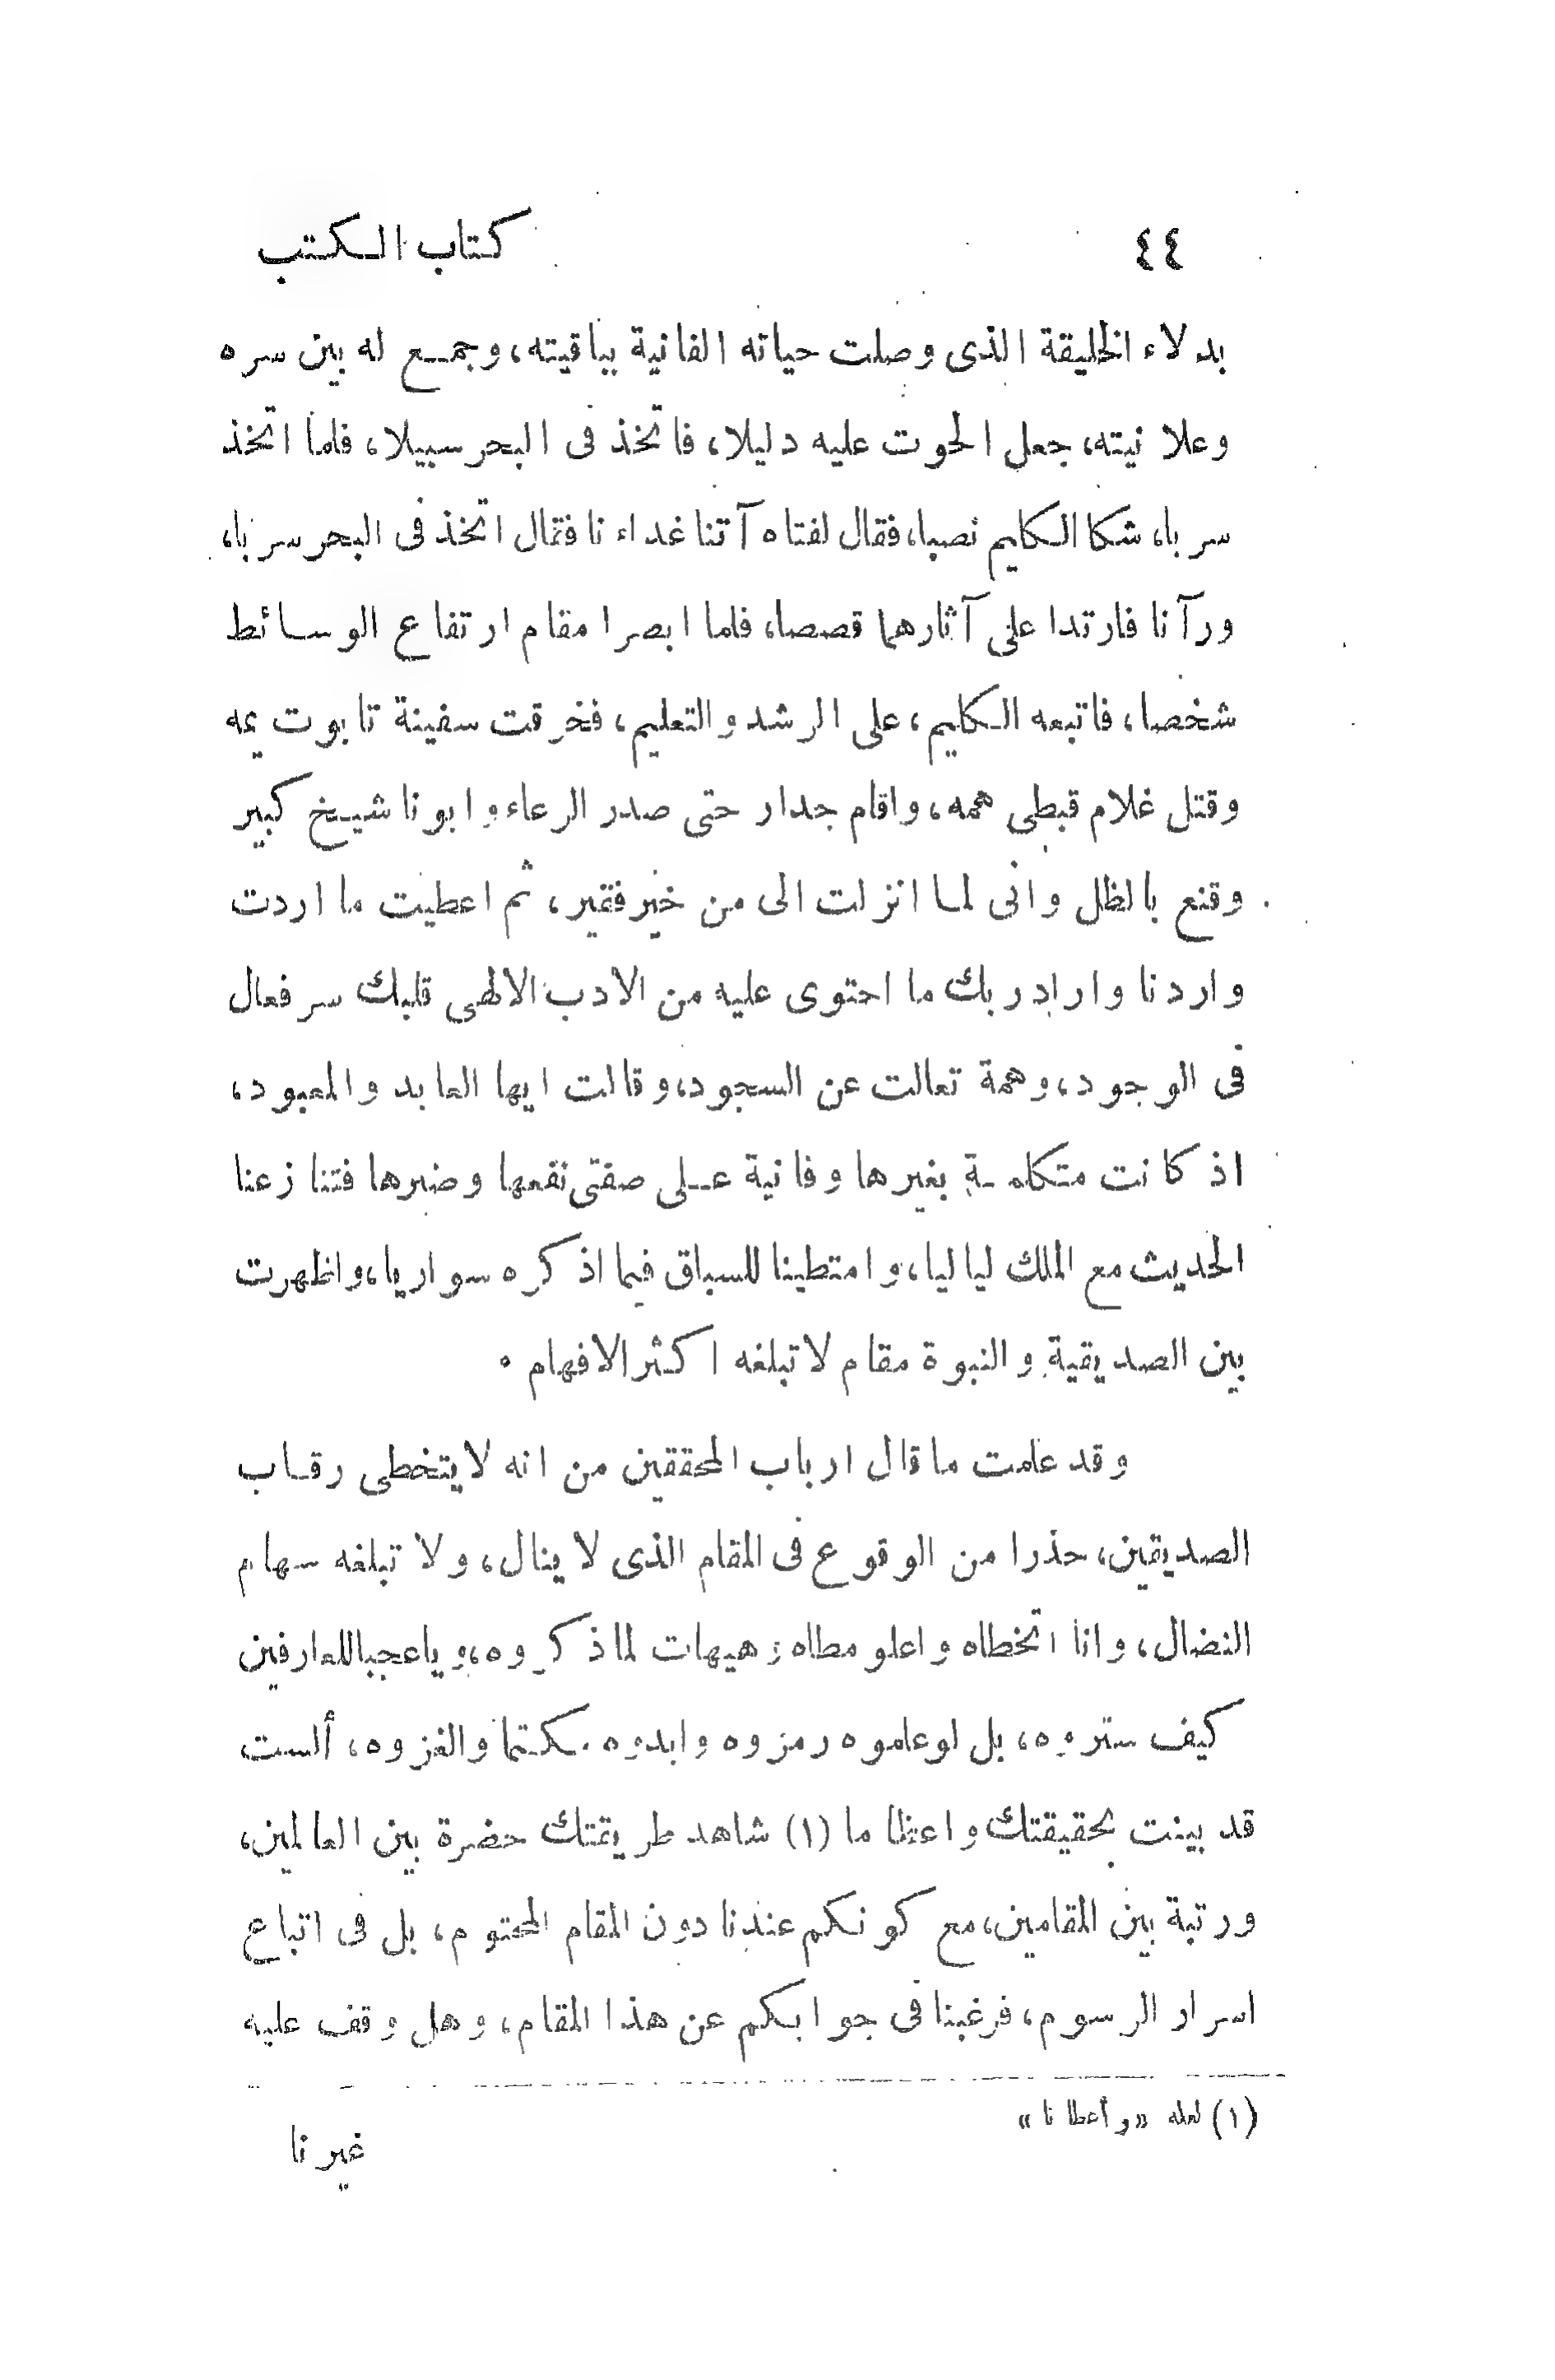 ٤٤ كتاب الكتب
بدلاء الخليقة الذى وصلت حياته الفانية بباقيته، وجمع له بين سره
وعلانيته، جعل الحوت عليه دليلا، فاتخذ فى البحر سبيلا، فلما اتخذ
سربا، شكا الكليم نصبا، فقال لفتاه آتنا غداءنا فقال اتخذ فى البحر سربا،
ورآنا فارتدا على آثارهما قصصا، فلما ابصرا مقام ارتفاع الوسائط
شخصا، فاتبعه الكليم، على الرشد والتعليم، فخرقت سفينة تابوت يمه
وقتل غلام قبطى همه، واقام جدار حتى صدر الرعاء وابونا شيخ كبير
وقنع بالظل وانى لما انزلت الى من خير فقير، ثم اعطيت ما اردت
واردنا واراد ربك ما احتوى عليه من الادب الالهى قلبك سر فعال
فى الوجود، وهمة تعالت عن السجود، وقالت ايها العابد والمعبود،
اذ كانت متكلمة بغيرها وفانية على صفتى نفعها وضرها فتنازعنا
الحديث مع الملك لياليا، وامتطينا للسباق فيما اذكره سواريا، واظهرت
بين الصديقية والنبوة مقام لا تبلغه اكثر الافهام ٠
وقد علمت ما قال ارباب المحققين من انه لا يتخطى رقاب
الصديقين، حذرا من الوقوع فى المقام الذى لا ينال، ولا تبلغه سهام
النضال، وانا اتخطاه واعلو مطاه وهيهات لما ذكروه، ويا عجبا للعارفين
كيف ستروه، بل لو علموه رمزوه وابدوه كتما والغزوه، ألست
قد بينت بحقيقتك واعظا ما (١) شاهد طريقتك حضرة بين العالمين،
ورتبة بين المقامين، مع كونكم عندنا دون المقام المختوم، بل فى اتباع
اسرار الرسوم، فرغبنا فى جوابكم عن هذا المقام، وهل وقف عليه
(١) لعله «وأعطانا»
غيرنا